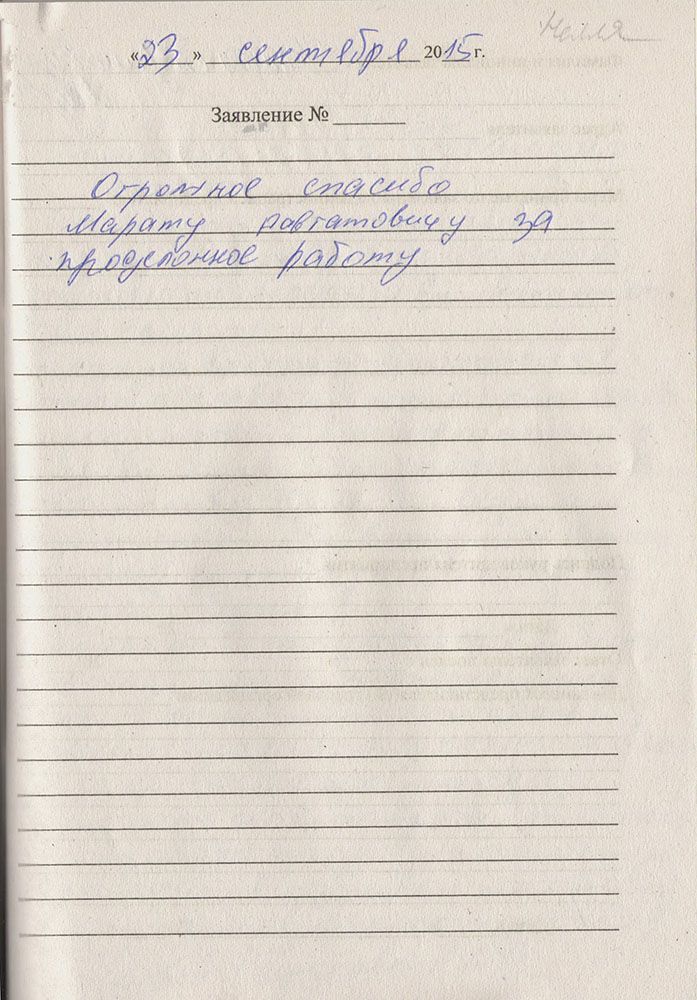 Наиля
«23» сентября 2015 г.
Заявление №
Огромное спасибо
Марату равгатовичу за
проделонное работу